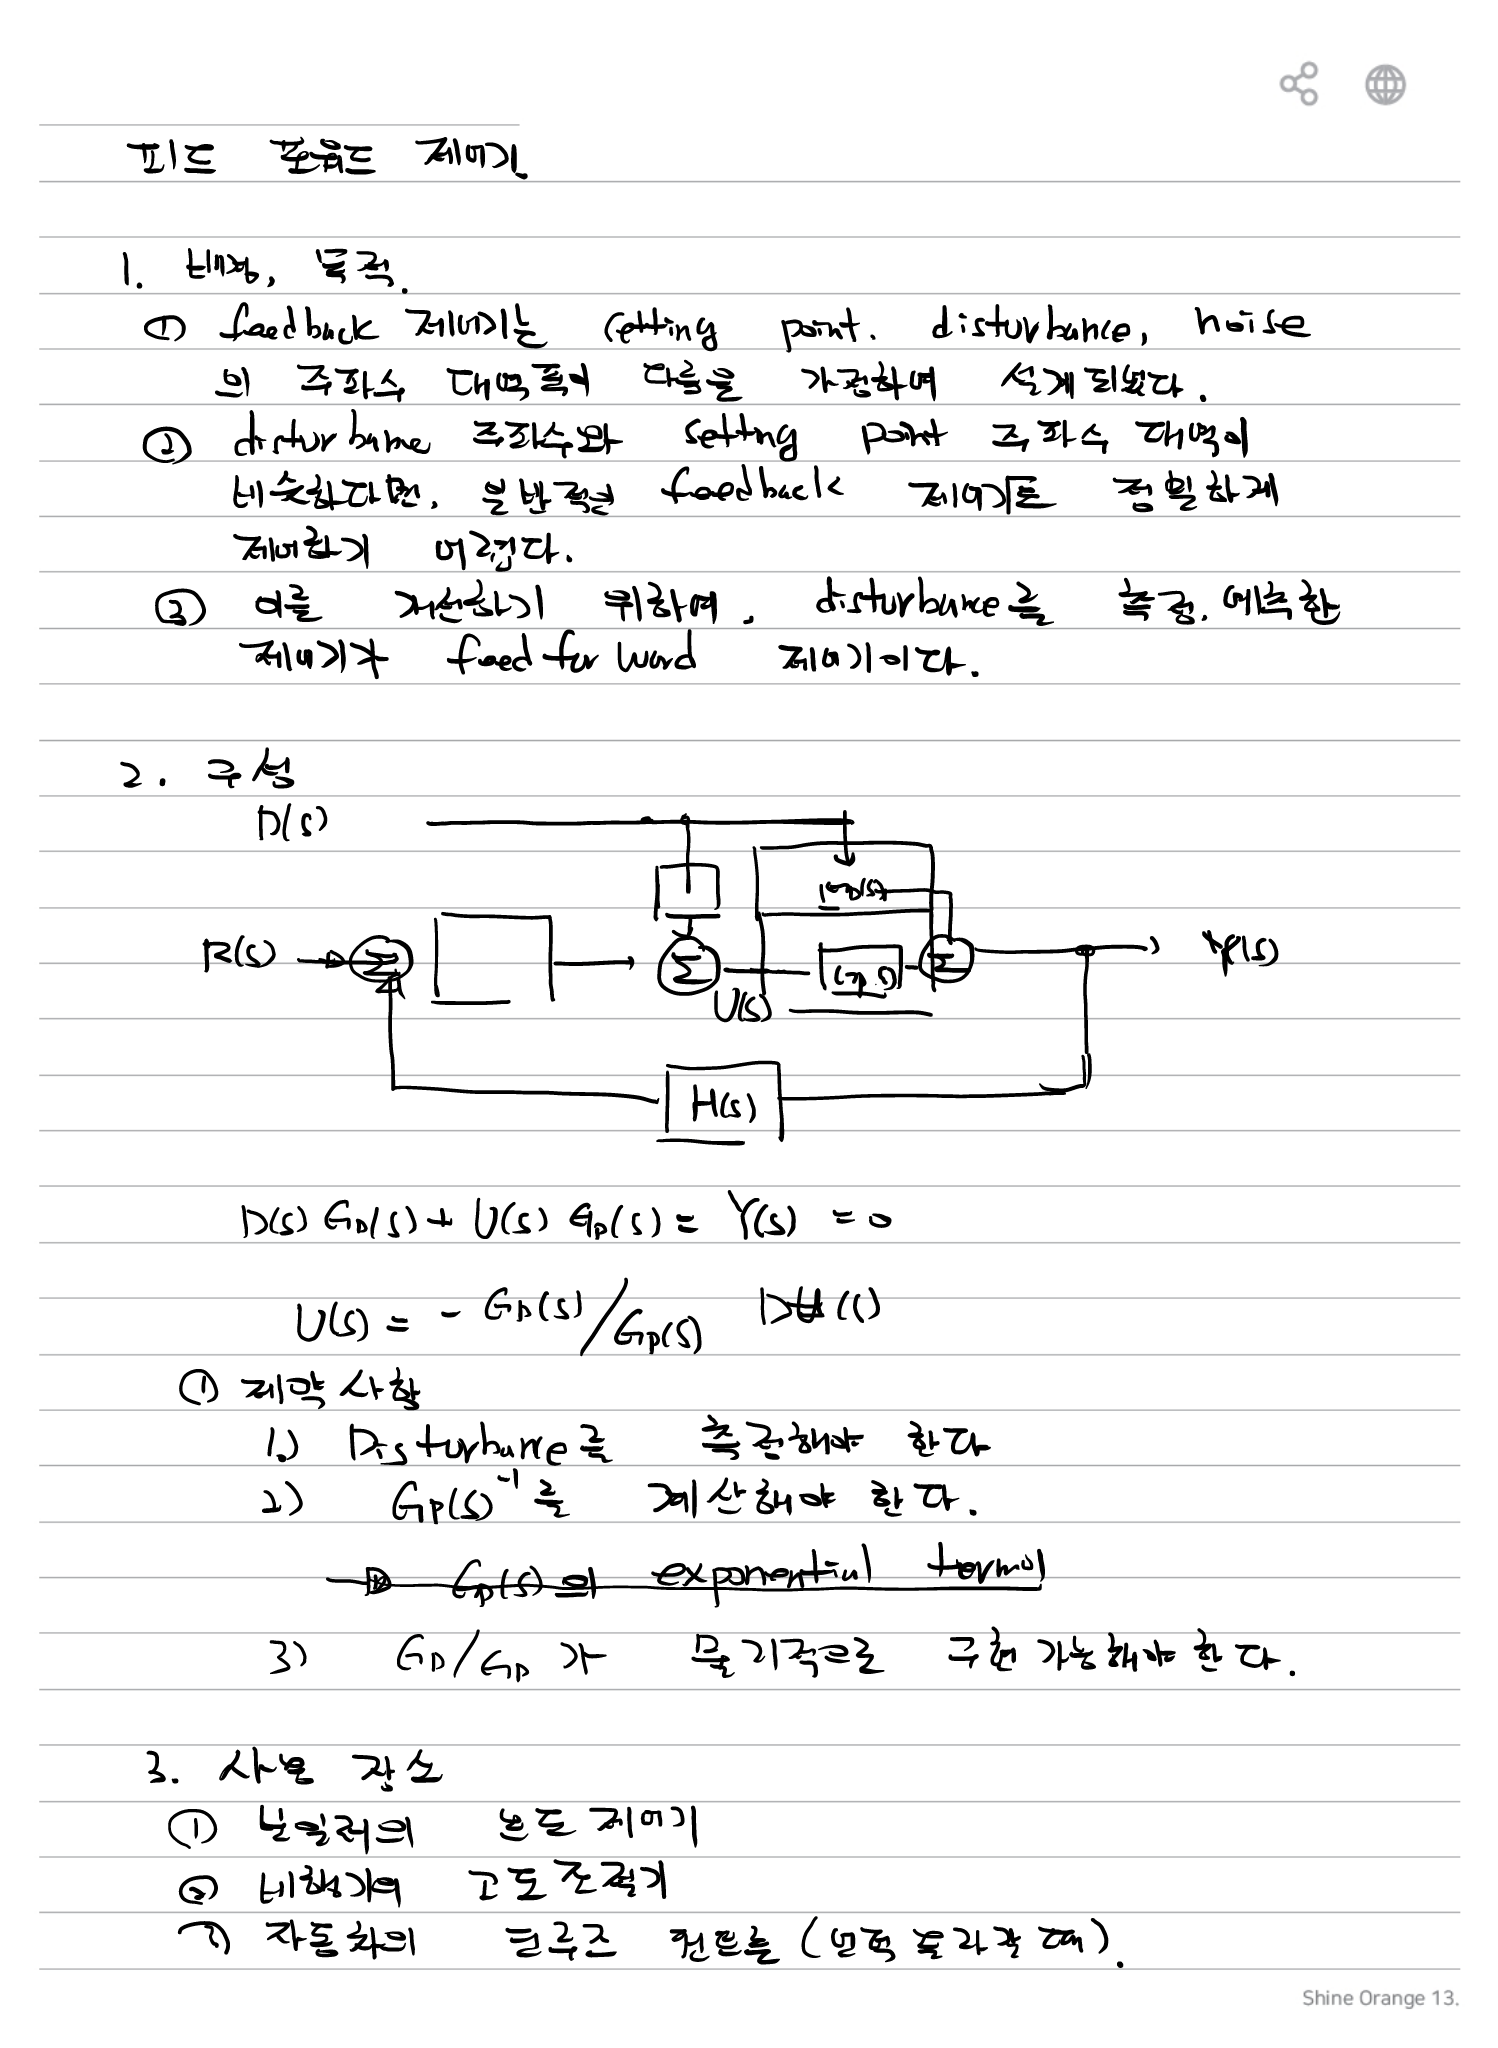 피드 포워드 제어기.
1. 배경, 목적.
① feedback 제어기는 setting point. disturbance, noise
의 주파수 대역폭이 다름을 가정하며 설계되었다.
② disturbance 주파수와 setting point 주파수 대역이
비슷하다면, 일반적인 feedback 제어기로 정밀하게
제어하기 어렵다.
③ 이를 개선하기 위하여, disturbance를 측정, 예측한
제어기가 feed forward 제어기이다.
2. 구성
D(s)
GD(s)
R(s) Σ Σ Gp(s) Σ Y(s)
U(s)
H(s)
D(s) GD(s) + U(s) Gp(s) = Y(s) = 0
U(s) = - GD(s)/Gp(s)
① 제약사항
1.) Disturbance를 측정해야 한다
2) Gp(s)⁻¹를 계산해야 한다.
Gp(s)의 exponential
3) GD/Gp 가 물리적으로 구현 가능해야 한다.
3. 사용 장소
① 보일러의 온도 제어기
② 비행기의 고도 조절기
③ 자동차의 크루즈 컨트롤 (언덕 올라갈 때).
Shine Orange 13.